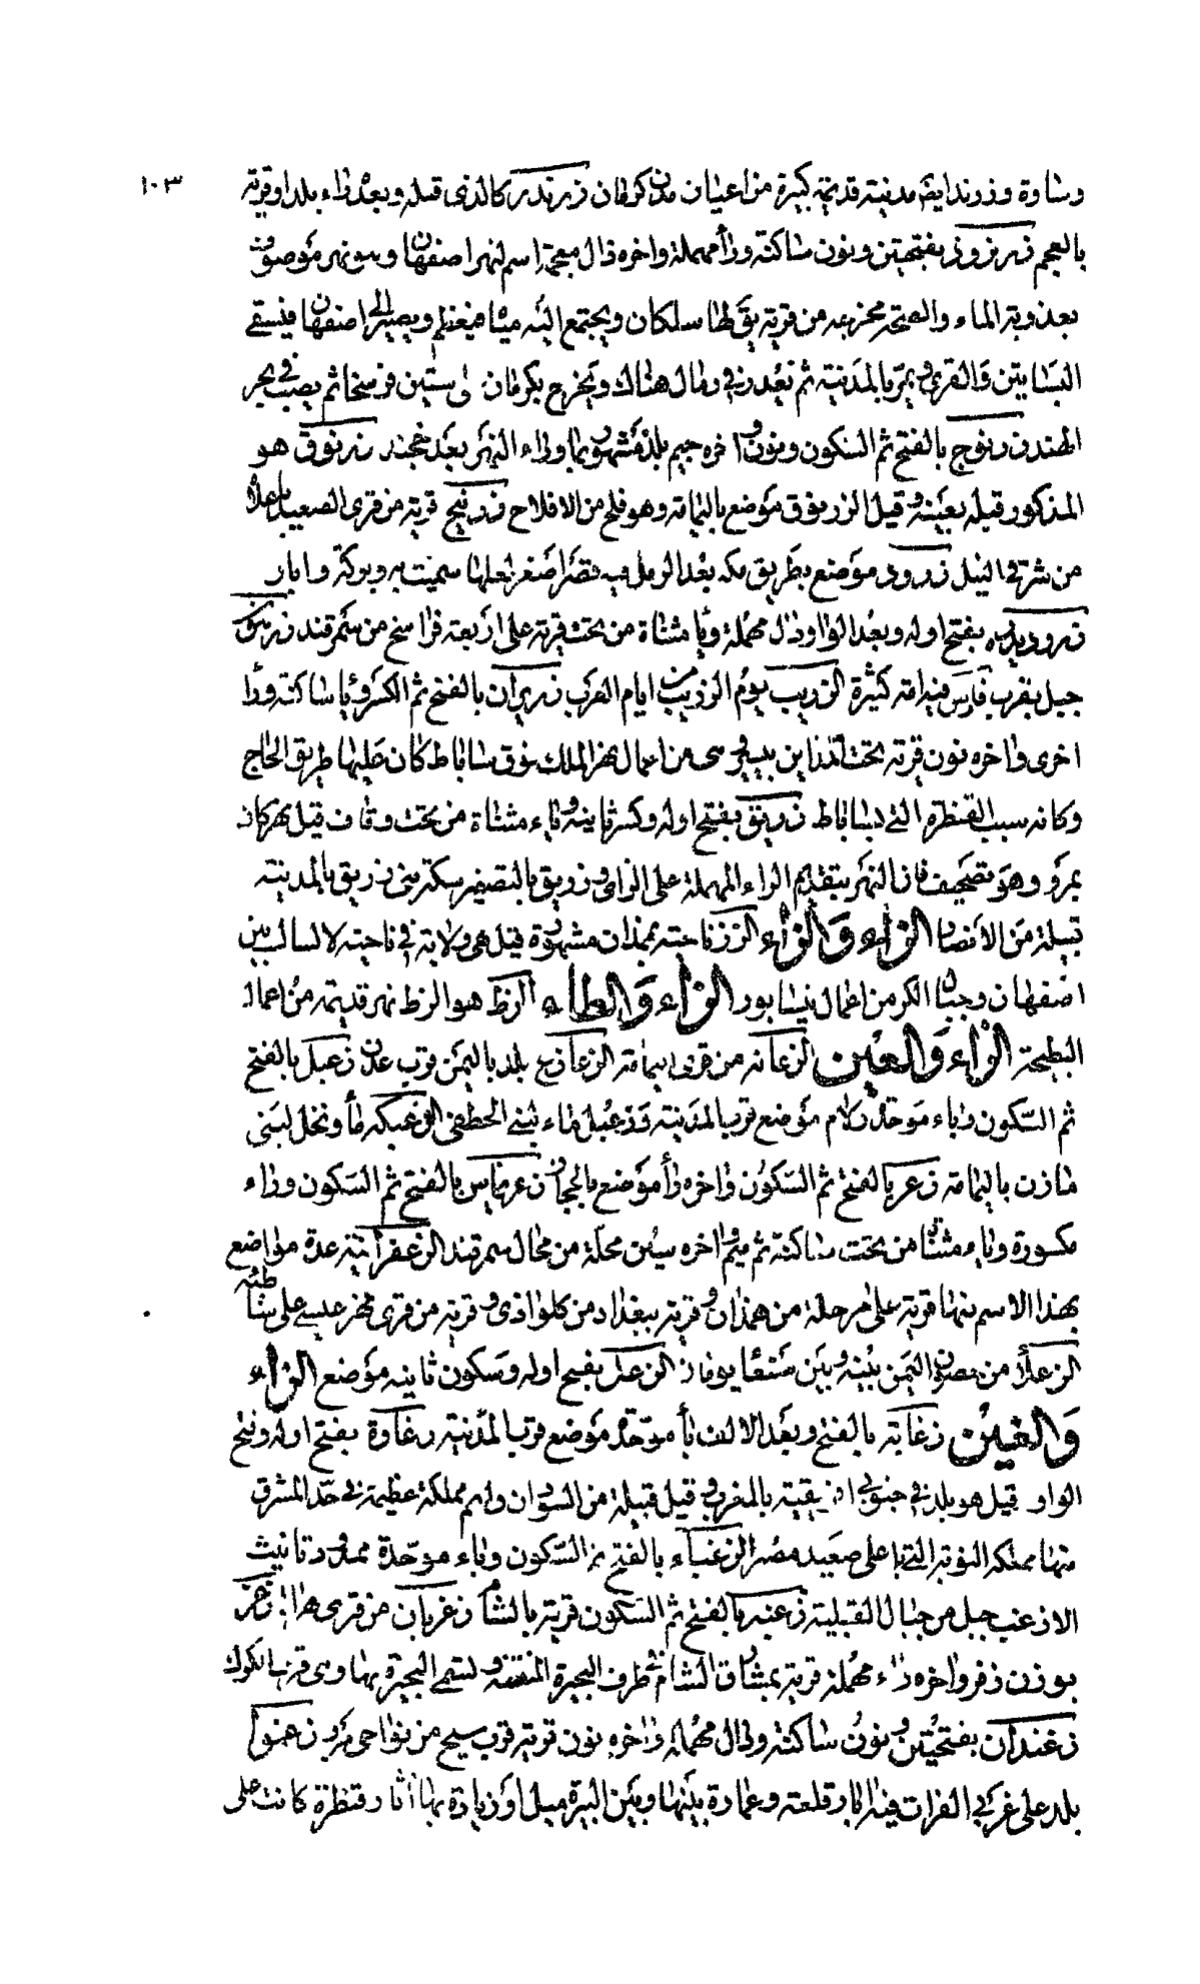 ١٠٣
وساوة وزرند ايضا مدينة قديمة كبيرة من اعيان مدن كرمان زرندر كالذي قبله وبعده راء بلد او قرية
بالعجم زرنروذ بفتحتين ونون ساكنة وراء مهملة واخره ذال معجمة اسم لنهر اصفهان وهو نهر موصوف
بعذوبة الماء والصحة مخرجه من قرية يق لها سلكان ويجتمع اليه مياه فيعظم ويصير الى اصفهان فيسقي
البساتين والقرى ويمر بالمدينة ثم يغور في رمال هناك ويخرج بكرمان على ستين فرسخا ثم يصب في بحر
الهند زرنوج بالفتح ثم السكون ونون واخره جيم بلد مشهور بما وراء النهر بعد خجند زرنوق هو
المذكور قبله بعينه وقيل الزرنوق موضع باليمامة وهو فلج من الافلاج زرنيخ قرية من قرى الصعيد باعلاه
من شرقي النيل زرود موضع بطريق مكه بعد الرمل فيه قصر اصفر لعلها سميت به وبركة وابار
زروديزه بفتح اوله وبعد الواو دال مهملة ويا مثناة من تحت قرية على اربعة فراسخ من سمرقند زرهون
جبل بقرب فاس فيه امة كثيرة الزريب يوم الزريب من ايام العرب زريران بالفتح ثم الكسر ويا ساكنة ورا
اخرى واخره نون قرية تحت المداين بيسير وهي من اعمال نهر الملك فوق ساباط كان عليها طريق الحاج
وكانه سبب القنطرة التي بساباط زريق بفتح اوله وكسر ثانيه وياء مثناة من تحت وقاف قيل نهر كان
بمرو وهو تصحيف فان النهر بتقديم الراء المهملة على الزاي وزريق بالتصغير سكة بني زريق بالمدينة
قبيلة من الانصار الزاء والزاء الزز ناحية بهمذان مشهورة قيل هي ولاية في ناحية لالستان بين
اصفهان وجبال الكر من اعمال نيسابور الزاء والطاء الزط هو الزط نهر قديم من اعمال
البطيحة الزاء والعين الزعابه من قرى اليمامة الزعازع بلد باليمن قرب عدن زعبل بالفتح
ثم السكون وباء موحدة ولام موضع قرب المدينة وزعبل ماء لبني الخطفي الزعبله ماء ونخل لبني
مازن باليمامة زعر بالفتح ثم السكون واخره را موضع بالحجاز زعريماس بالفتح ثم السكون وراء
مكسورة وياء مثناة من تحت ساكنة ثم ميم واخره سين محلة من محال سمرقند الزعفرانية عدة مواضع
بهذا الاسم منها قرية على مرحلة من همذان وقرية ببغداد من كلواذي وقرية من قرى نهر عيسى على شاطئه
الزعلاء من حصون اليمن بينه وبين صنعا يومان الزعل بفتح اوله وسكون ثانيه موضع الزاء
والغين زغابة بالفتح وبعد الالف با موحدة موضع قرب المدينة زغاوة بفتح اوله وفتح
الواو قيل هو بلد في جنوبي افريقية بالمغرب وقيل قبيلة من السودان ولهم مملكة عظيمة في حد المشرق
منها مملكة النوبة التي باعلى صعيد مصر الزغباء بالفتح ثم السكون وباء موحدة ممدود تانيث
الازغب جبل من جبال القبلية زغبه بالفتح ثم السكون قرية بالشام زغربان من قرى هراة زغر
بوزن زفر واخره راء مهملة قرية بمشارق الشام في طرف البحيرة المنتنه وتسمى البحيرة بها وهي قرب الكرك
زغندان بفتحتين ونون ساكنة ودال مهملة واخره نون قرية قرب سنج من نواحي مرو زغموا
بلد على غربي الفرات فيه اثار وقلعة وعمارة بينها وبين البيرة ميل او زيادة بها اثار قنطرة كانت على